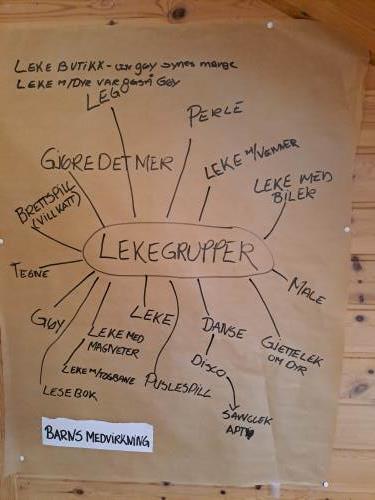 LEKE BUTIKK - gøy synes mange
LEKE M/DYR VAR også GØY
LEGO
PERLE
GJØRE DET MER
LEKE M/VENNER
LEKE MED
BILER
BRETTSPILL
(VILLKATT)
LEKEGRUPPER
TEGNE
MALE
GØY
LEKE
DANSE
LEKE MED
MAGNETER
GJETTELEK
OM DYR
DISCO
LEKE M/TOGBANE
PUSLESPILL
LESE BOK
SANGLEK
BARNS MEDVIRKNING